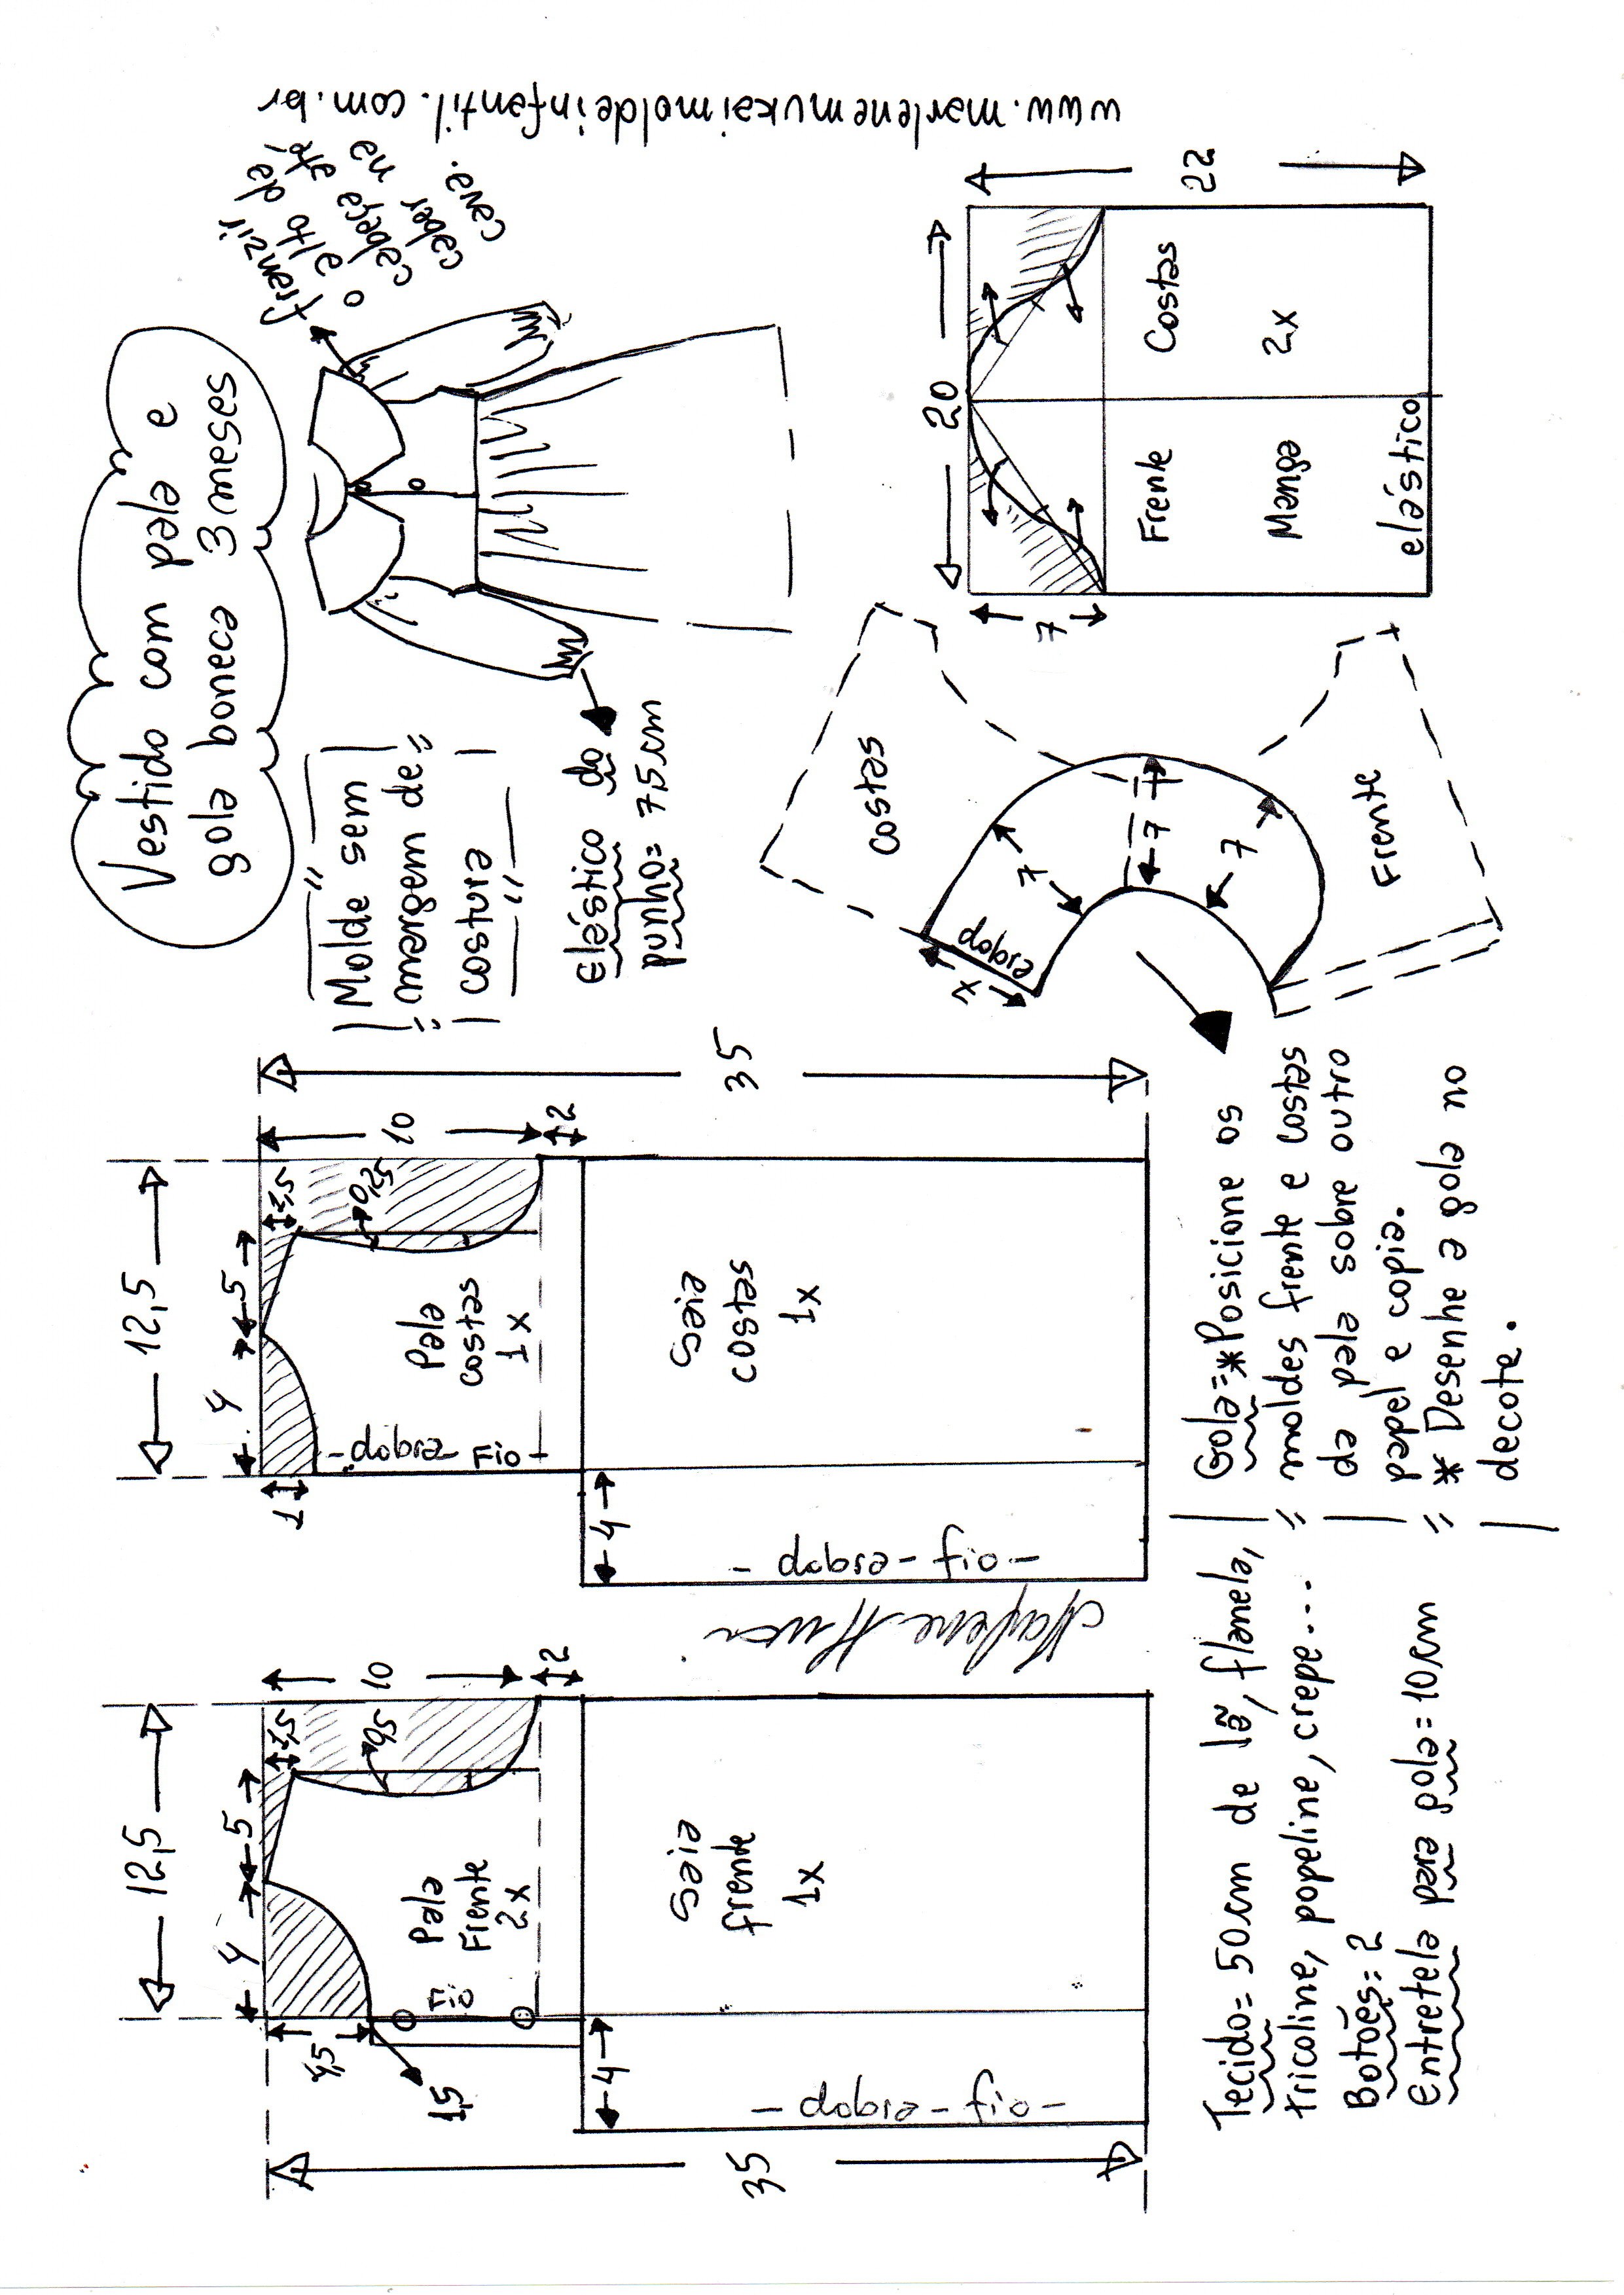 Vestido com pala e
gola boneca 3 meses
franzir
o alto da
cabeça até
caber na
cava.
www.marlenemukaimoldeinfantil.com.br
"Molde sem
margem de
costura"
Elástico do
punho= 7,5cm
12,5
4
5
1,5
4,5
1,5
0,5
10
2
Fio
Pala
Frente
2x
35
4
Saia
frente
1x
- dobra - fio -
12,5
4
5
1,5
1
0,25
10
2
35
Pala
costas
1x
- dobra - Fio -
4
Saia
costas
1x
- dobra - fio -
costas
dobra
7
7
7
7
Frente
20
22
7
Frente
Costas
Manga
2x
elástico
Tecido= 50cm de lã, flanela,
tricoline, popeline, crepe...
Botões= 2
Entretela para gola= 10cm
Gola=*Posicione os
moldes frente e costas
da pala sobre outro
papel e copia.
* Desenhe a gola no
decote.